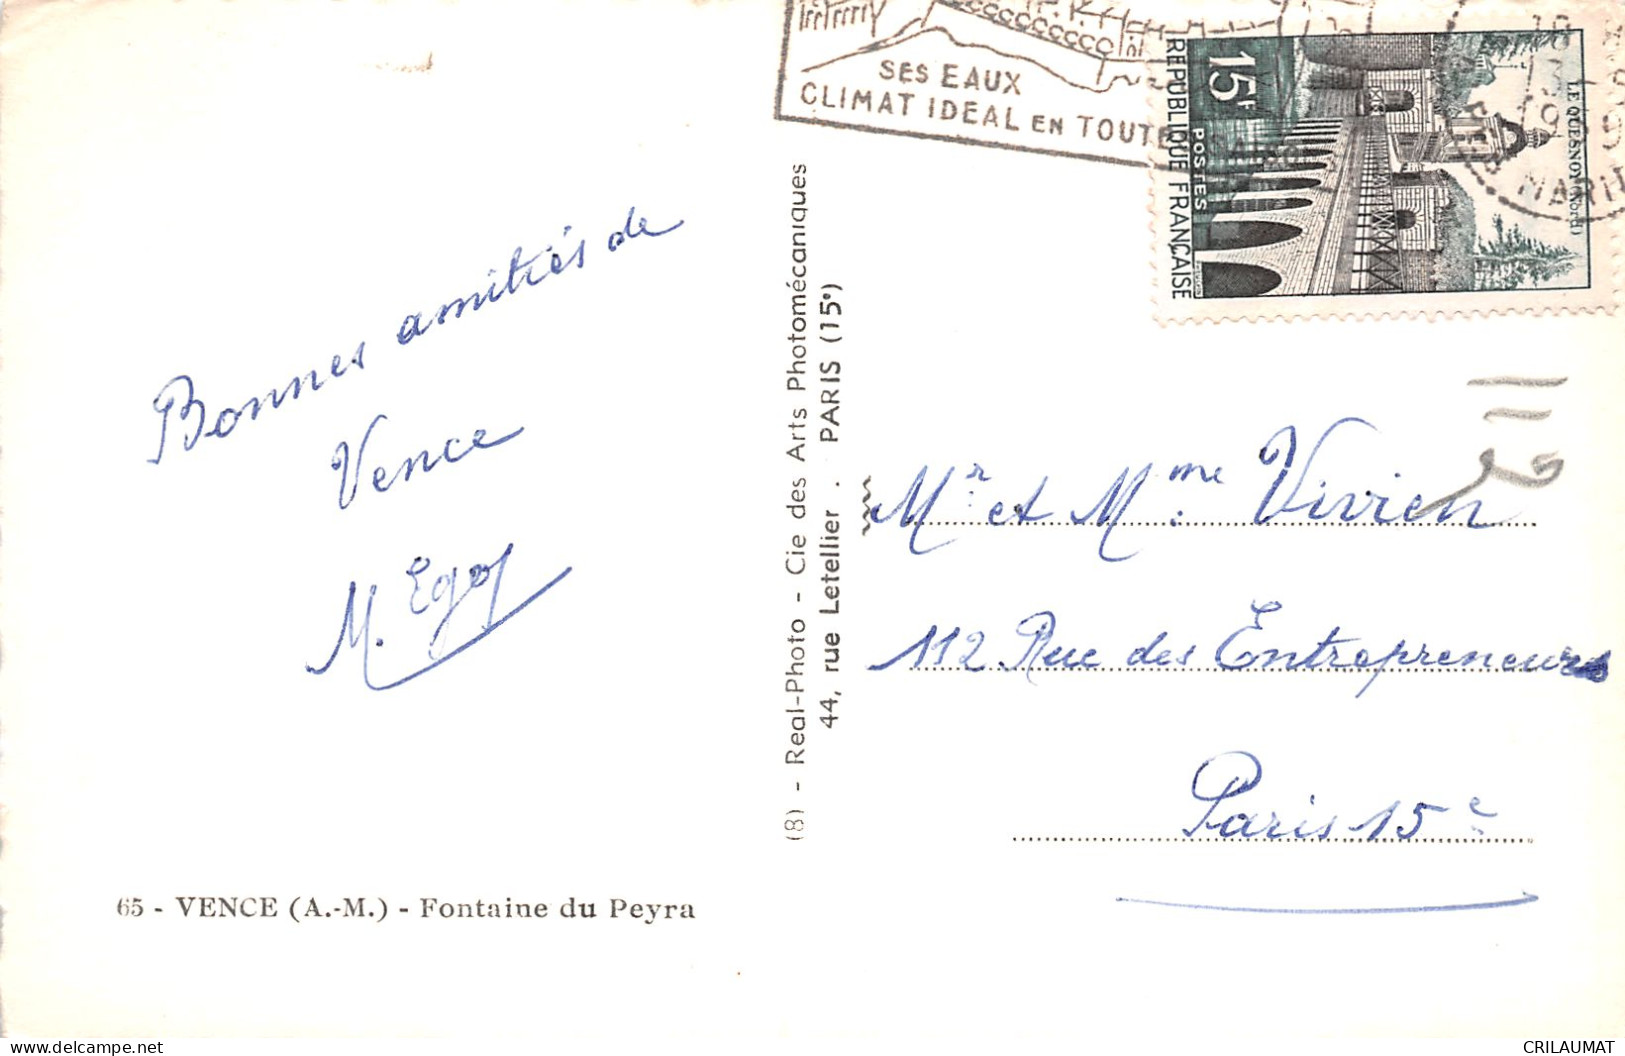 SES EAUX
CLIMAT IDEAL EN TOUTE
15F
POSTES
REPUBLIQUE FRANÇAISE
LE QUESNOY (Nord)
MARIT
Bonnes amitiés de
Vence
M. Egos
(8) - Real-Photo - Cie des Arts Photomécaniques
44, rue Letellier . PARIS (15e)
Mr et Mme. Vivien
112 Rue des Entrepreneurs
Paris 15e
65 - VENCE (A.-M.) - Fontaine du Peyra
CRILAUMAT